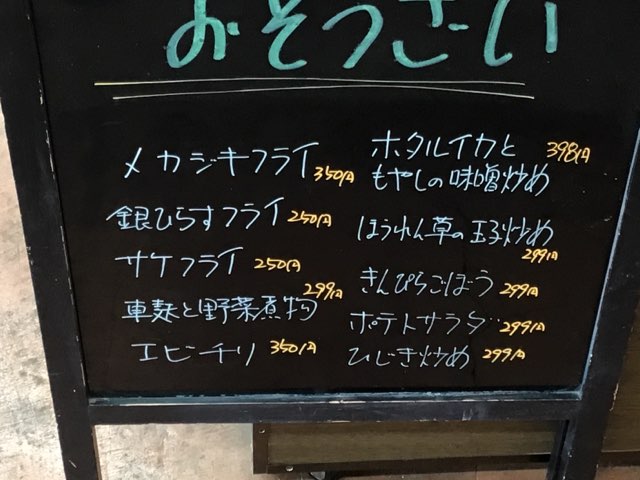 おそうざい
メカジキフライ 350円
銀ひらすフライ 250円
サケフライ 250円
車麸と野菜煮物 299円
エビチリ 350円
ホタルイカと
もやしの味噌炒め 398円
ほうれん草の玉子炒め
299円
きんぴらごぼう 299円
ポテトサラダ 299円
ひじき炒め 299円